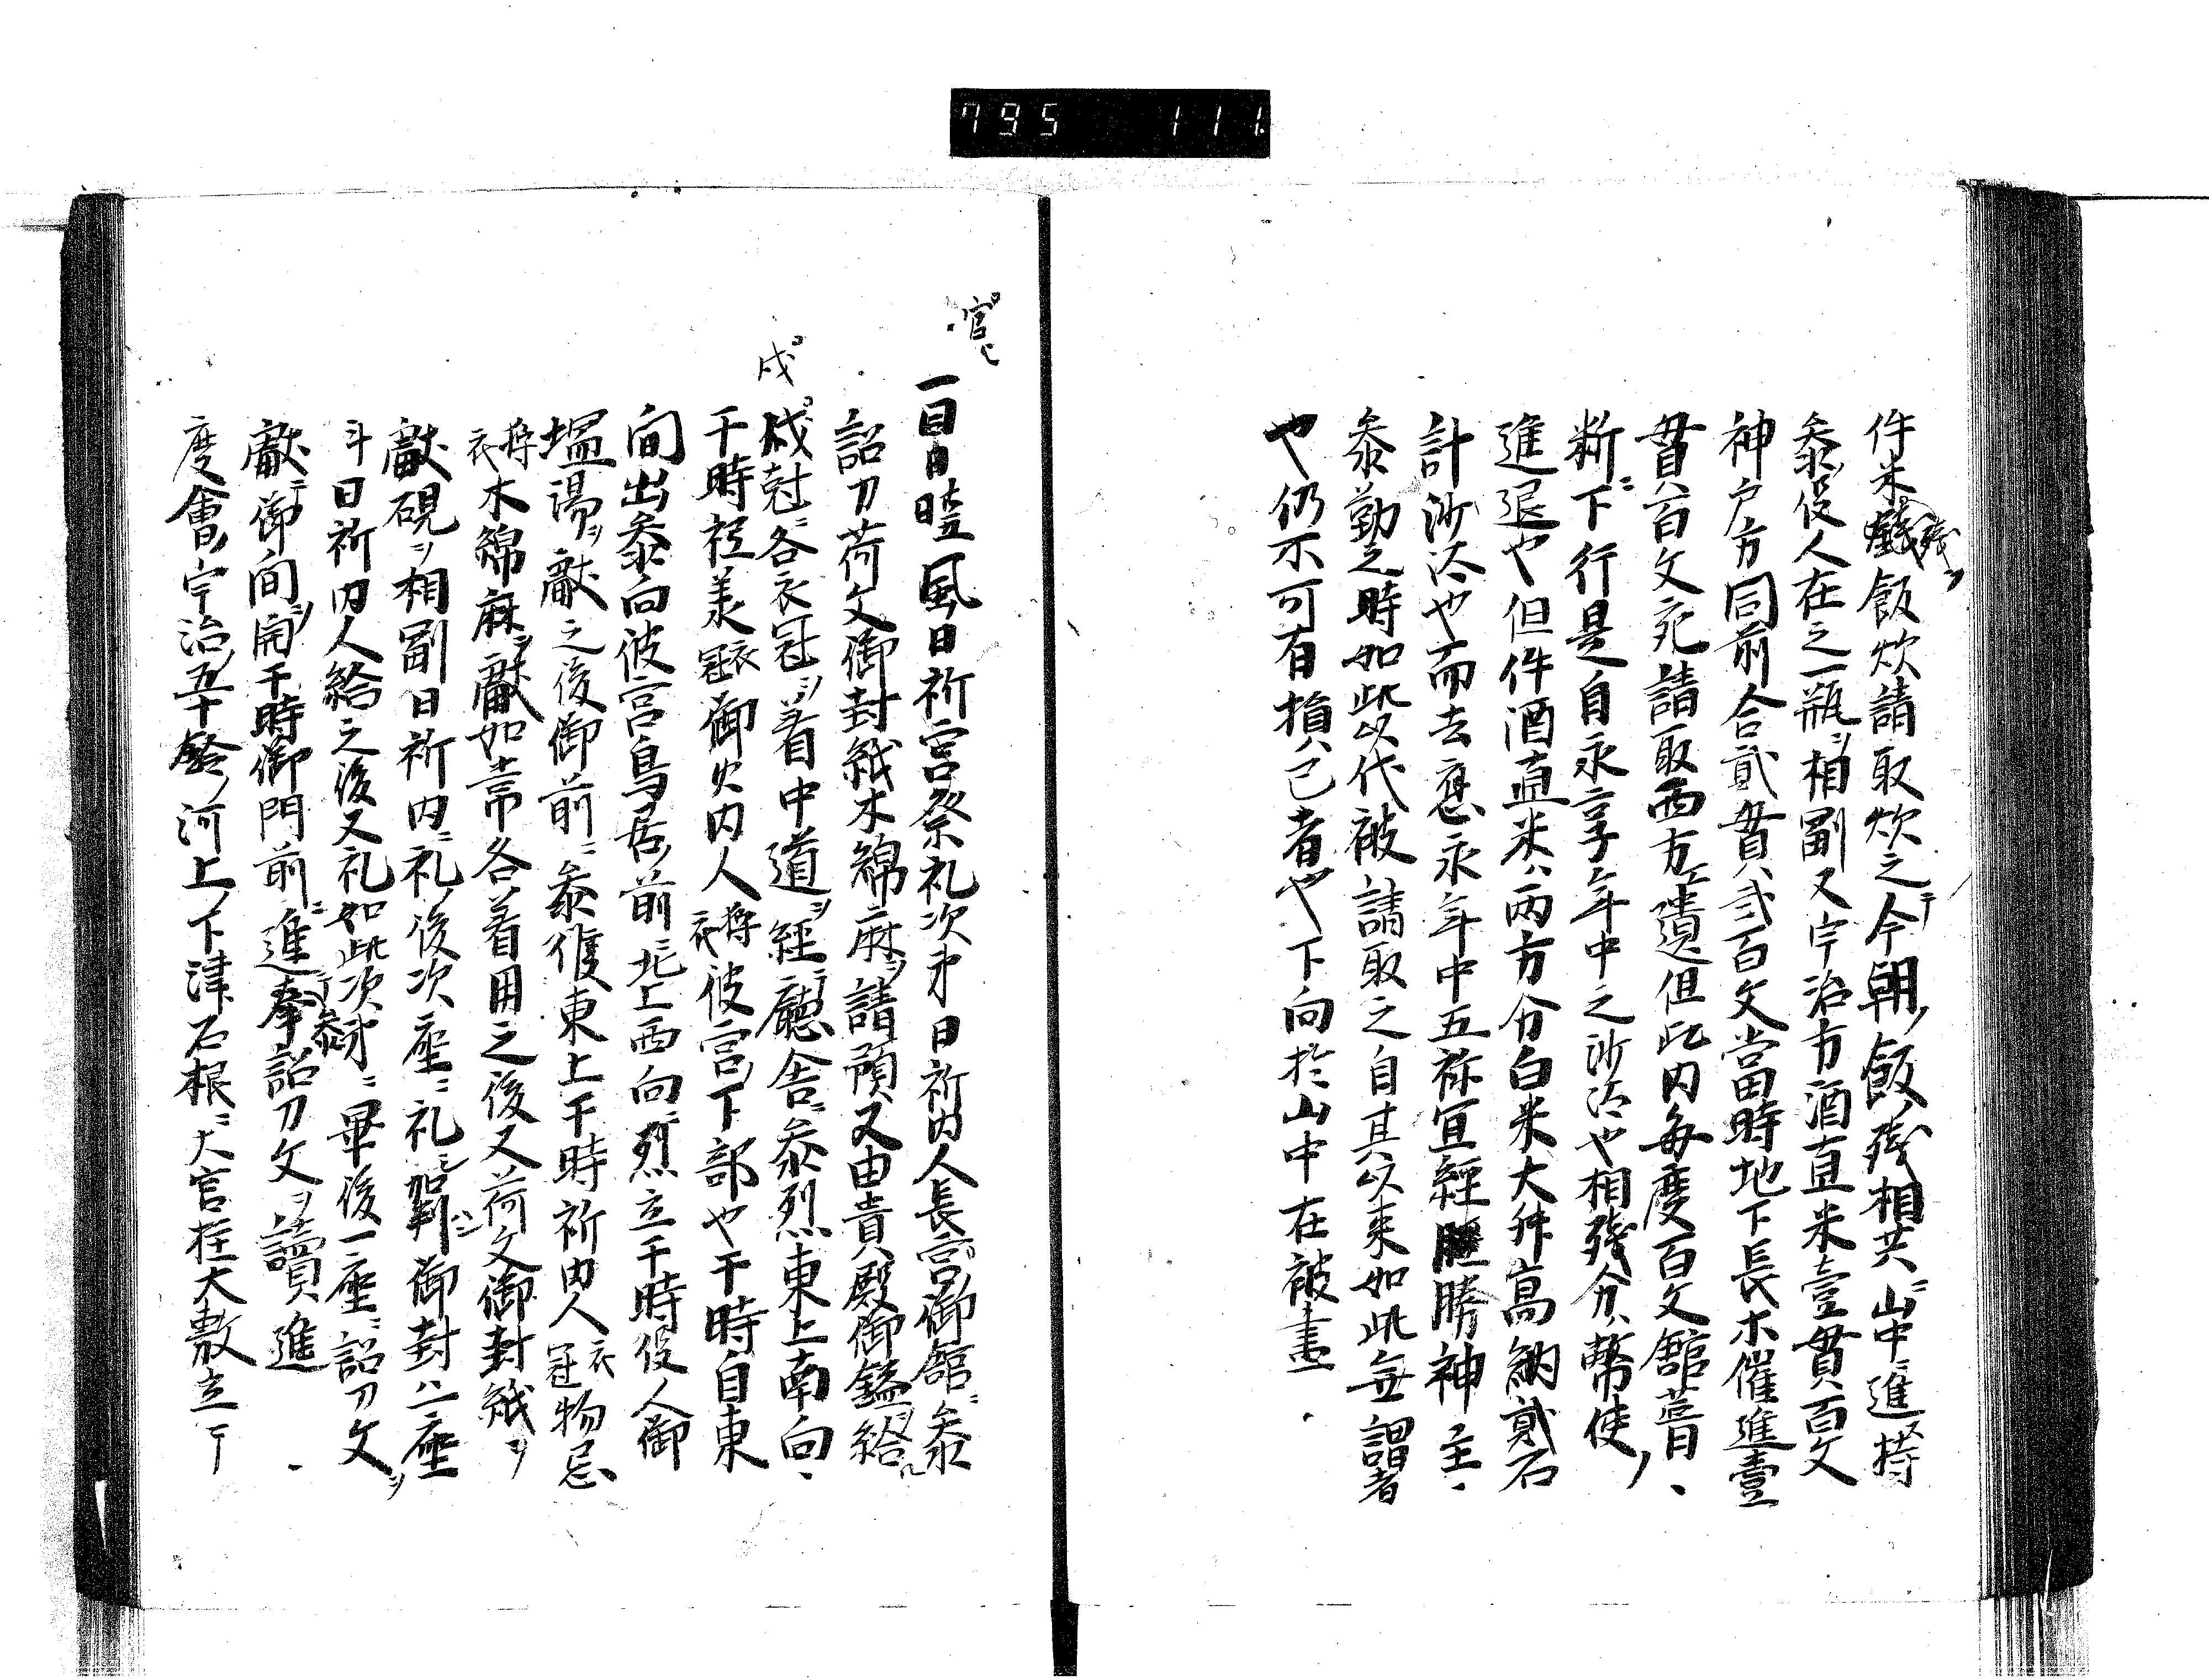 795 111
件米残飯炊請取炊之ニ今朝ノ飯ノ残相共ニ山中ニ進ス持
参ノ役人在之一瓶ヲ相副又宇治方酒直米壹貫百文
神戸方同前合貳貫八弐百文當時地下長木催進壹
貫八百文宛請取両方エ遺但此内毎度百文舘莒日
断ニ下行是自永享年中之沙汰也相残分八幣使ノ
進退也但件酒直米八両方分白米大舛髙納貳石
計沙汰也而去應永年中五祢冝經勝神主
参勤之時如此以代被請取之自其以来如此無謂者
也仍不可有損已者也下向於山中在被畫
官ヒ
一同日晝風日祈宮祭礼次第日祈内人長官御舘ニ参
詔刀荷文御封紙木綿麻ヲ請預又由貴殿御鎰給
戌
戌尅ニ各衣冠ヲ着中道ヲ經ニ廳舎ニ参烈東上南向
干時禰冝衣冠御火内人将衣彼宮ノ下部也干時自東
間出参向彼宮鳥居ノ前ニ北上西向ニ烈立干時役人御
塩湯ヲ獻之後御前ニ参候東上干時祈内人衣冠物忌
将衣木綿麻ヲ獻如常各着用之後又荷文御封紙ヲ
獻硯ヲ相副日祈内ニ礼ノ後次座ニ礼シ加判シ御封八二座
斗日祈内人給之後又礼如此次第ニ畢後一座ニ詔刀文ヲ
獻ニ御間ヲ開干時御門前ニ進ニ奉詔刀文ヲ讀進
度會ノ宇治ノ五十鈴ノ河上ノ下津石根ニ大宮柱大敷立テ